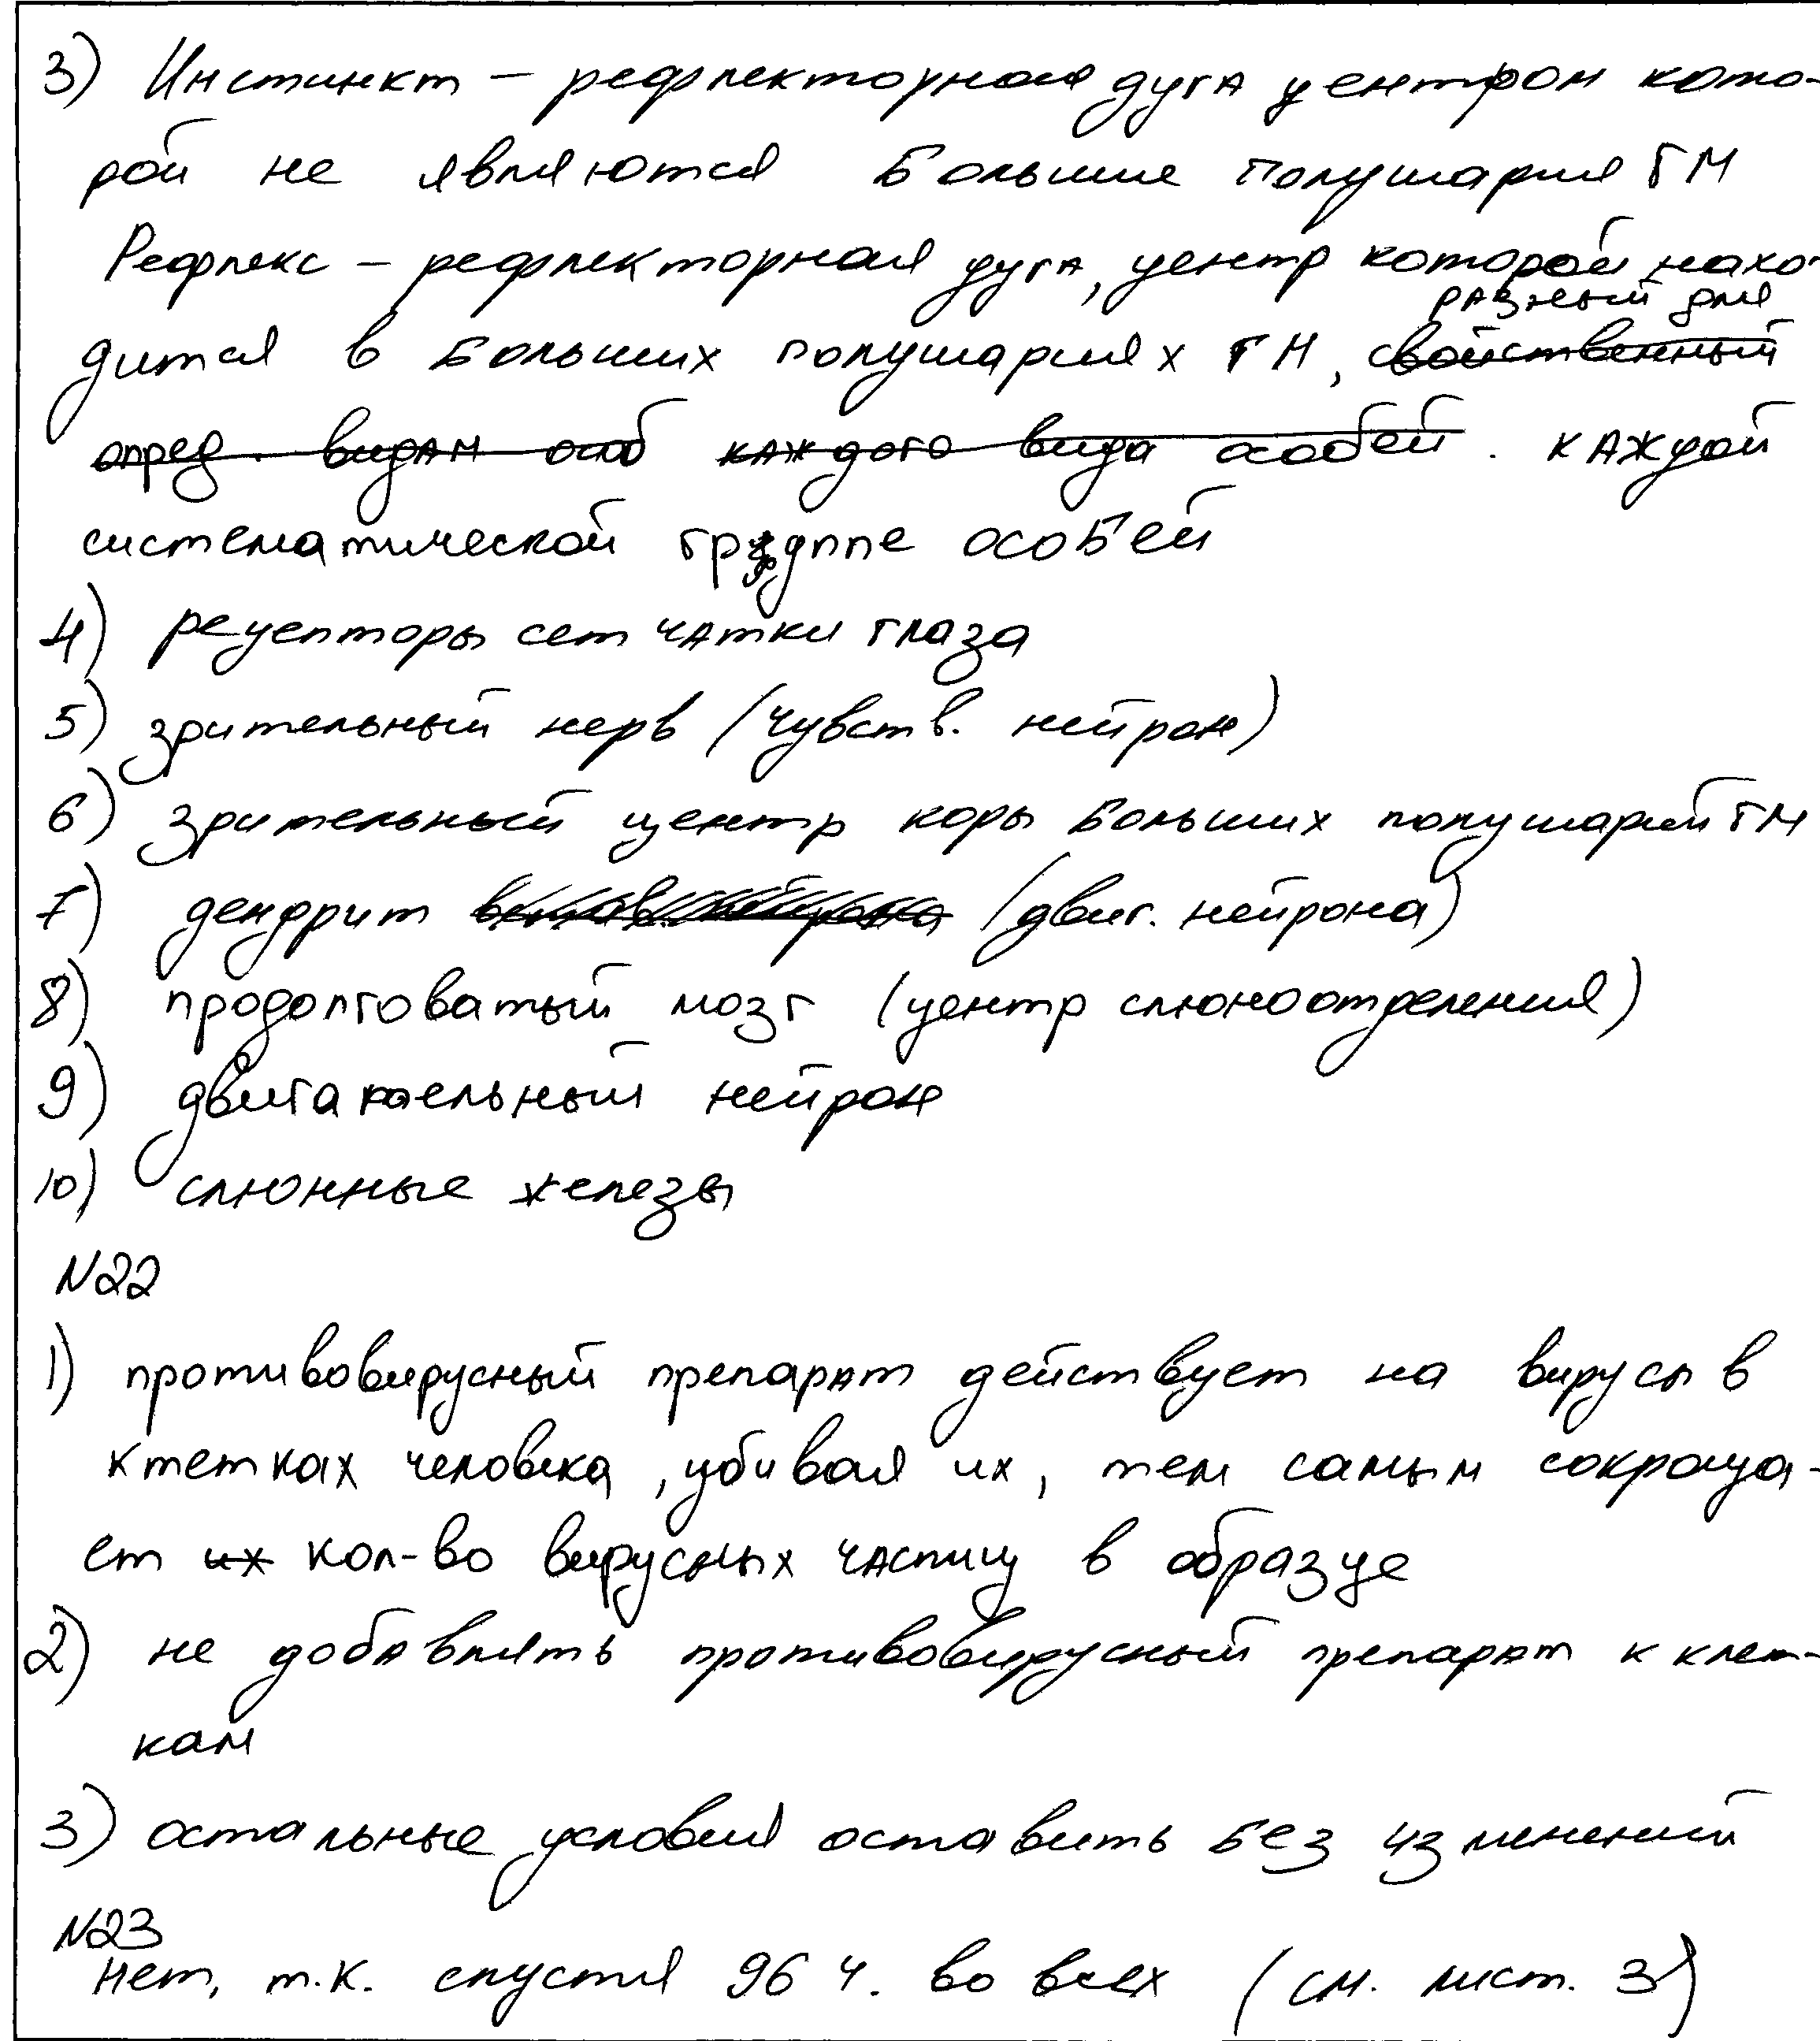 3) Инстинкт – рефлекторная дуга центром кото-
рой не являются Большие полушария ГМ
Рефлекс – рефлекторная дуга, центр которой нахо-
разный для
дится в Больших полушариях ГМ, свойственный
опред. видам особ каждого вида особей. каждой
систематической группе особей
4) рецепторы сетчатки глаза
5) зрительный нерв (чувств. нейрон)
6) зрительный центр коры Больших полушарий ГМ
7) дендрит (двиг. нейрона)
8) продолговатый мозг (центр слюноотделения)
9) двигательный нейрон
10) слюнные железы
N22
1) противовирусный препарат действует на вирусы в
клетках человека, убивая их, тем самым сокраща-
ет их кол-во вирусных частиц в образце
2) не добавлять противовирусный препарат к клет-
кам
3) остальные условия оставить без изменений
N23
Нет, т.к. спустя 96 ч. во всех (см. лист. 3)